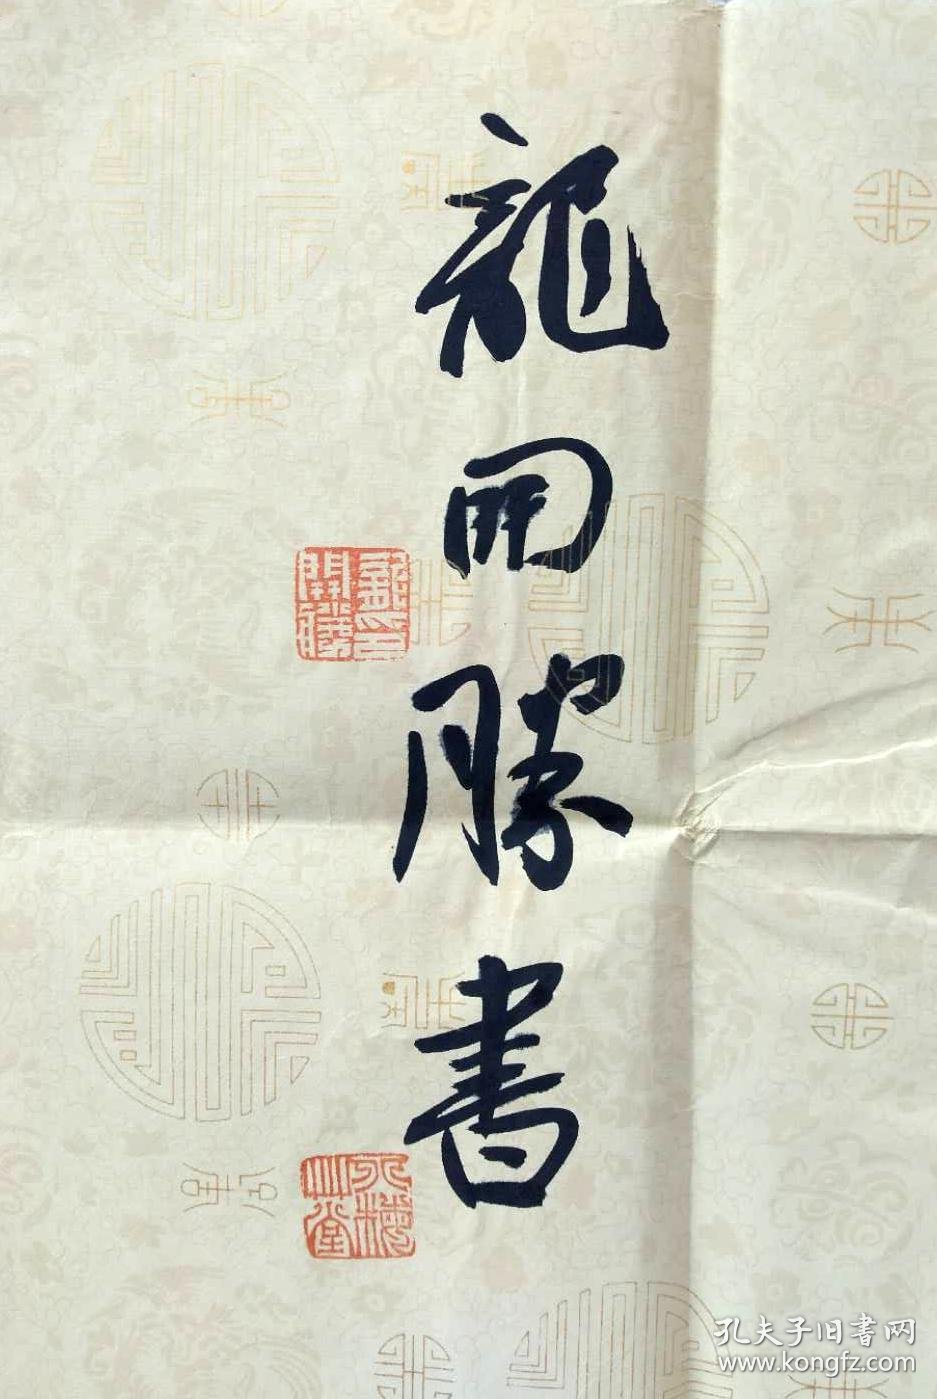 龍開勝書
孔夫子旧書网
www.kongfz.com